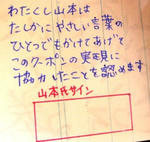 わたくし山本は
たしかにやさしい言葉の
ひとつでもかけてあげて
このクーポンの実現に
協力したことを認めます
山本氏サイン